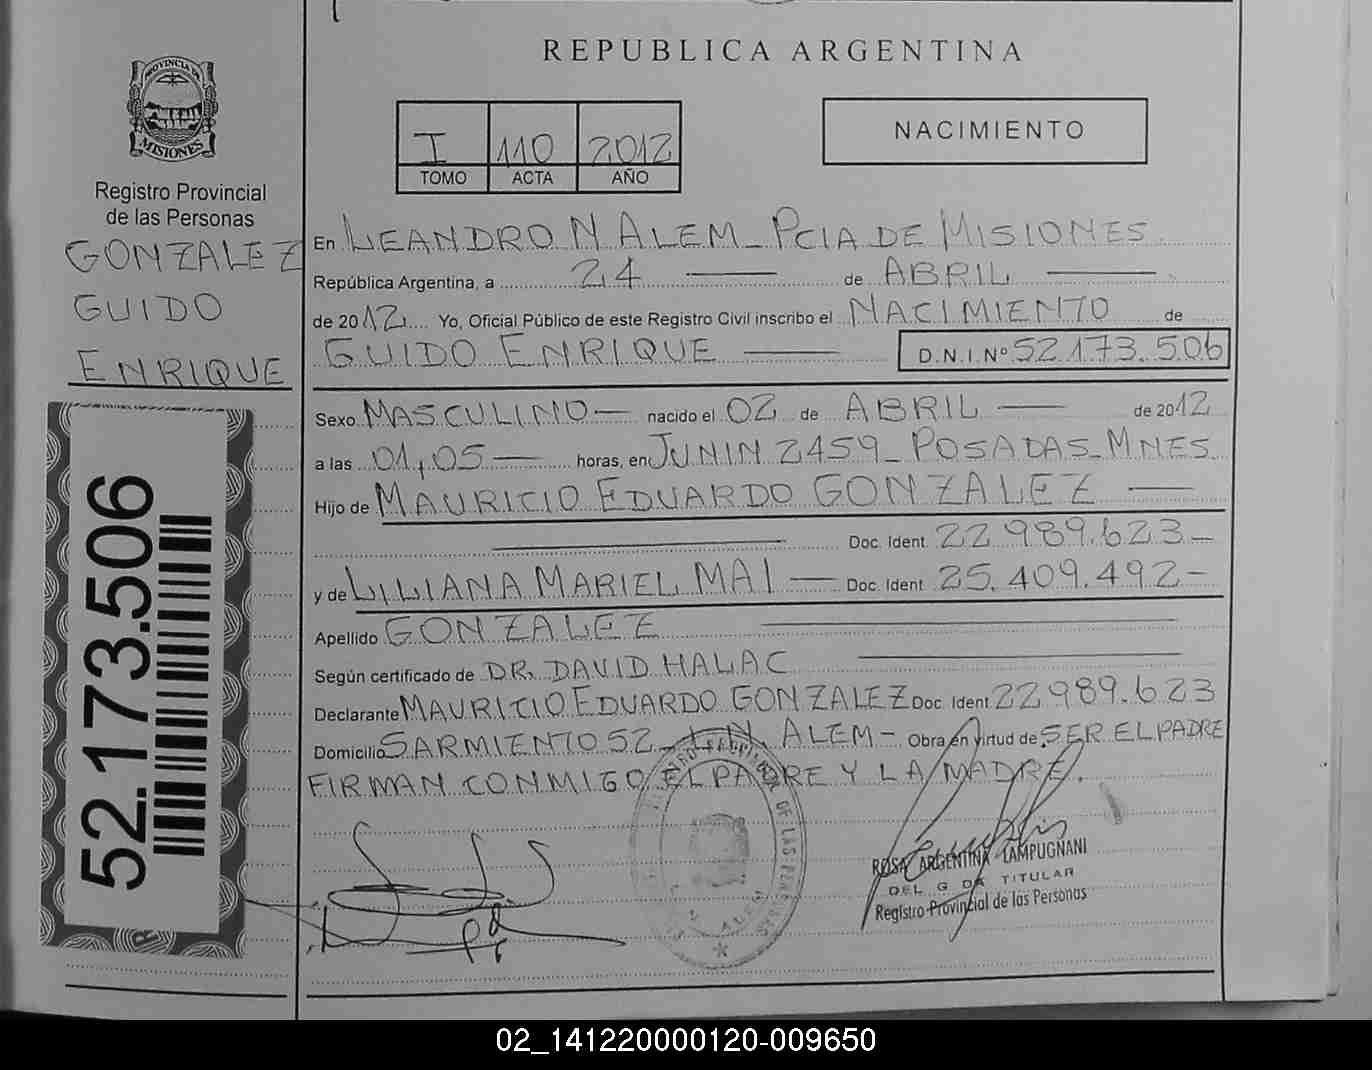 PROVINCIA DE
MISIONES
Registro Provincial
de las Personas
GONZALEZ
GUIDO
ENRIQUE
52.173.506
REPUBLICA ARGENTINA
I 110 2012
TOMO ACTA AÑO
NACIMIENTO
En LEANDRO N ALEM - PCIA DE MISIONES.
República Argentina, a 24 de ABRIL
de 2012 Yo, Oficial Público de este Registro Civil inscribo el NACIMIENTO de
GUIDO ENRIQUE D.N.I. Nº 52.173.506
Sexo MASCULINO nacido el 02 de ABRIL de 2012
a las 01,05 horas, en JUNIN 2459 - POSADAS - MNES.
Hijo de MAURICIO EDUARDO GONZALEZ
Doc. Ident. 22.989.623-
y de LILIANA MARIEL MAI Doc. Ident. 25.409.492-
Apellido GONZALEZ
Según certificado de DR. DAVID HALAC
Declarante MAURICIO EDUARDO GONZALEZ Doc. Ident. 22.989.623
Domicilio SARMIENTO 52 - L N ALEM - Obra en virtud de SER EL PADRE
FIRMAN CONMIGO EL PADRE Y LA MADRE.
ROSA ARGENTINA LAMPUGNANI
TITULAR
Registro Provincial de las Personas
02_141220000120-009650